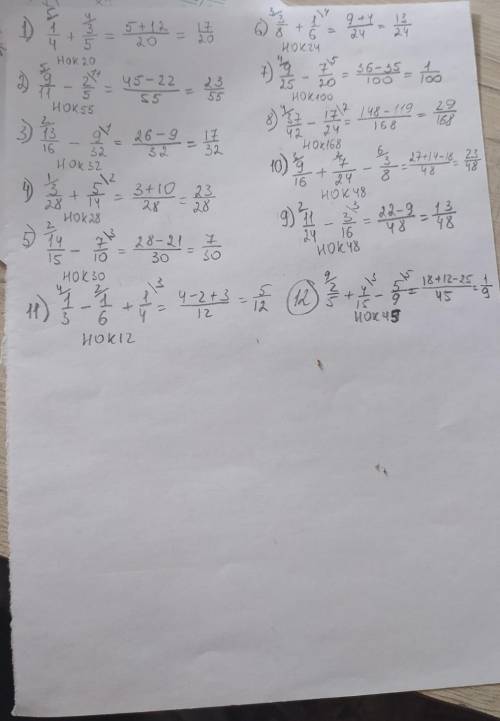 1) 1/4 + 3/5 = (5+12)/20 = 17/20
НОК20
2) 9/11 − 2/5 = (45−22)/55 = 23/55
НОК55
3) 13/16 − 9/32 = (26−9)/32 = 17/32
НОК32
4) 3/28 + 5/14 = (3+10)/28 = 23/28
НОК28
5) 14/15 − 7/10 = (28−21)/30 = 7/30
НОК30
6) 3/8 + 1/6 = (9+4)/24 = 13/24
НОК24
7) 9/25 − 7/20 = (36−35)/100 = 1/100
НОК100
8) 37/42 − 17/24 = (148−119)/168 = 29/168
НОК168
10) 9/16 + 7/24 − 3/8 = (27+14−18)/48 = 23/48
НОК48
9) 11/24 − 3/16 = (22−9)/48 = 13/48
НОК48
11) 1/3 − 1/6 + 1/4 = (4−2+3)/12 = 5/12
НОК12
12 2/5 + 4/15 − 5/9 = (18+12−25)/45 = 1/9
НОК45